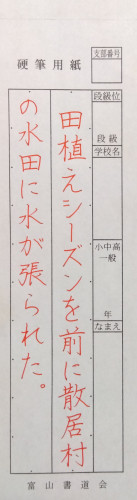 硬筆用紙
支部番号
段級位
段級
学校名
小中高
一般
年
なまえ
田植えシーズンを前に散居村
の水田に水が張られた。
富山書道会